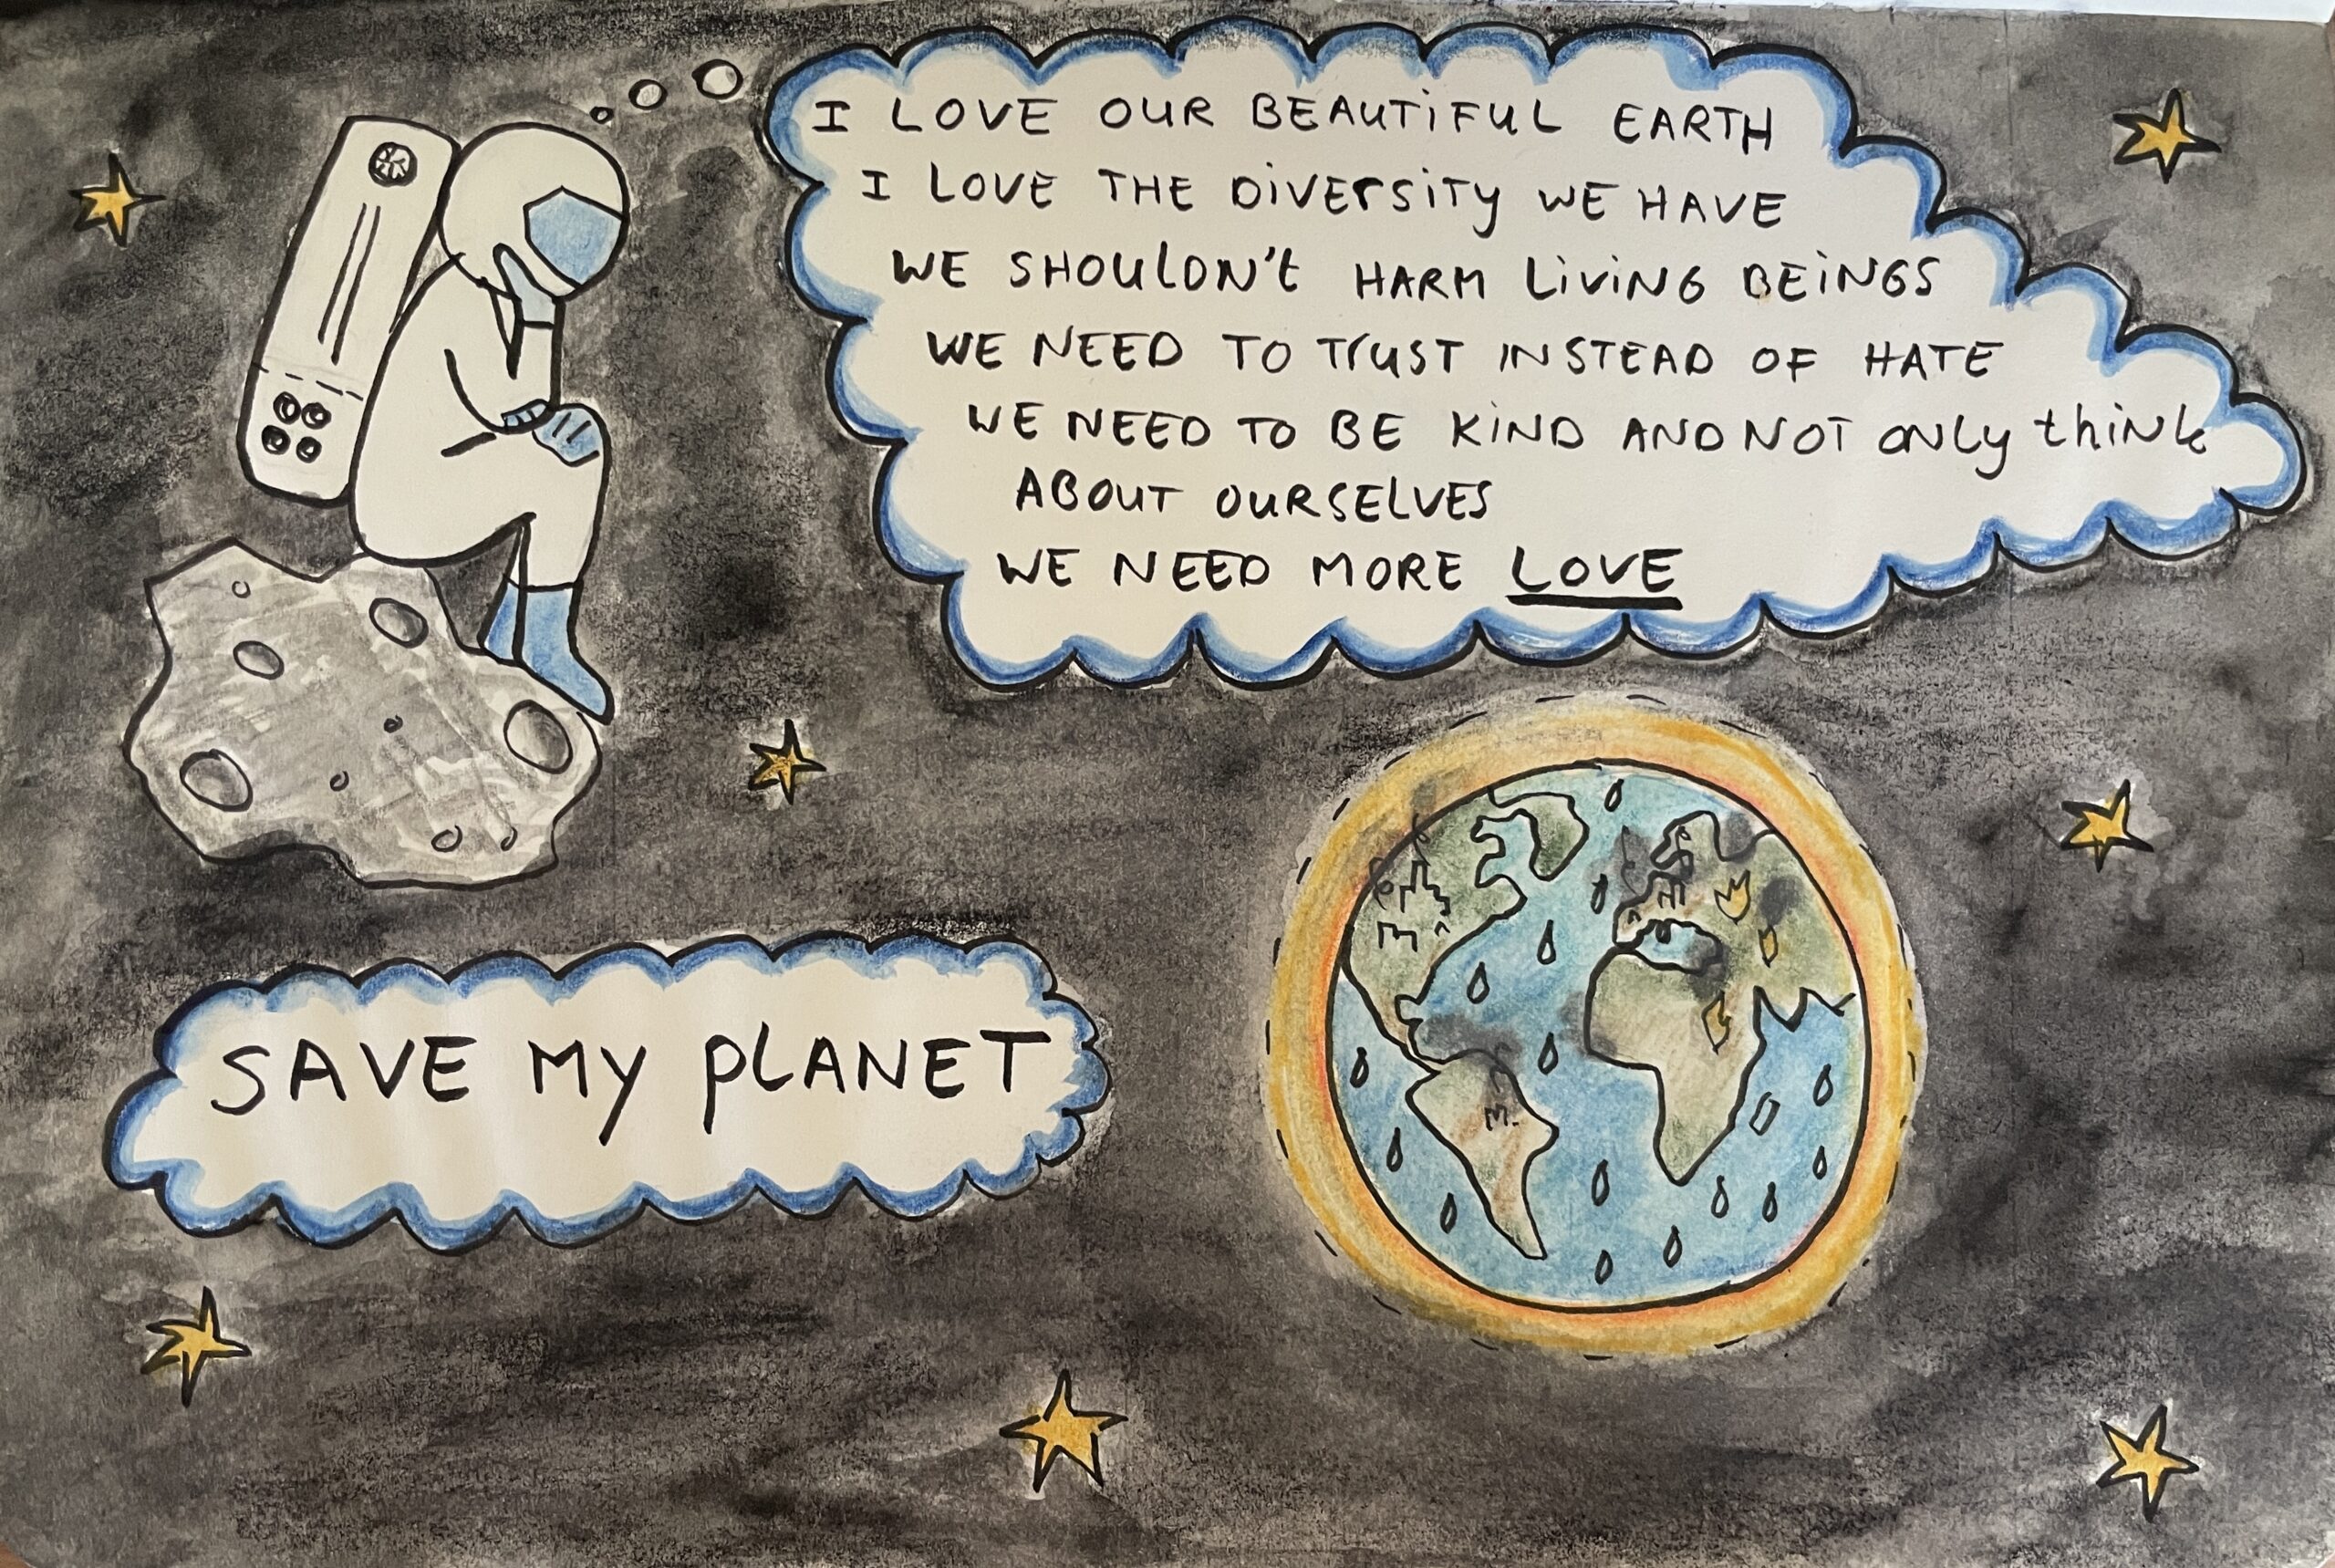 I LOVE OUR BEAUTiFUL EARTH
I LOVE THE DiVERSiTy WE HAVE
WE SHOULDN't HARM LiViNG BEiNGS
WE NEED TO TrUST INSTEAD OF HATE
WE NEED TO BE KiND AND NOT ONLy thiNk
ABOUT OURSELVES
WE NEED MORE LOVE
SAVE My pLANET